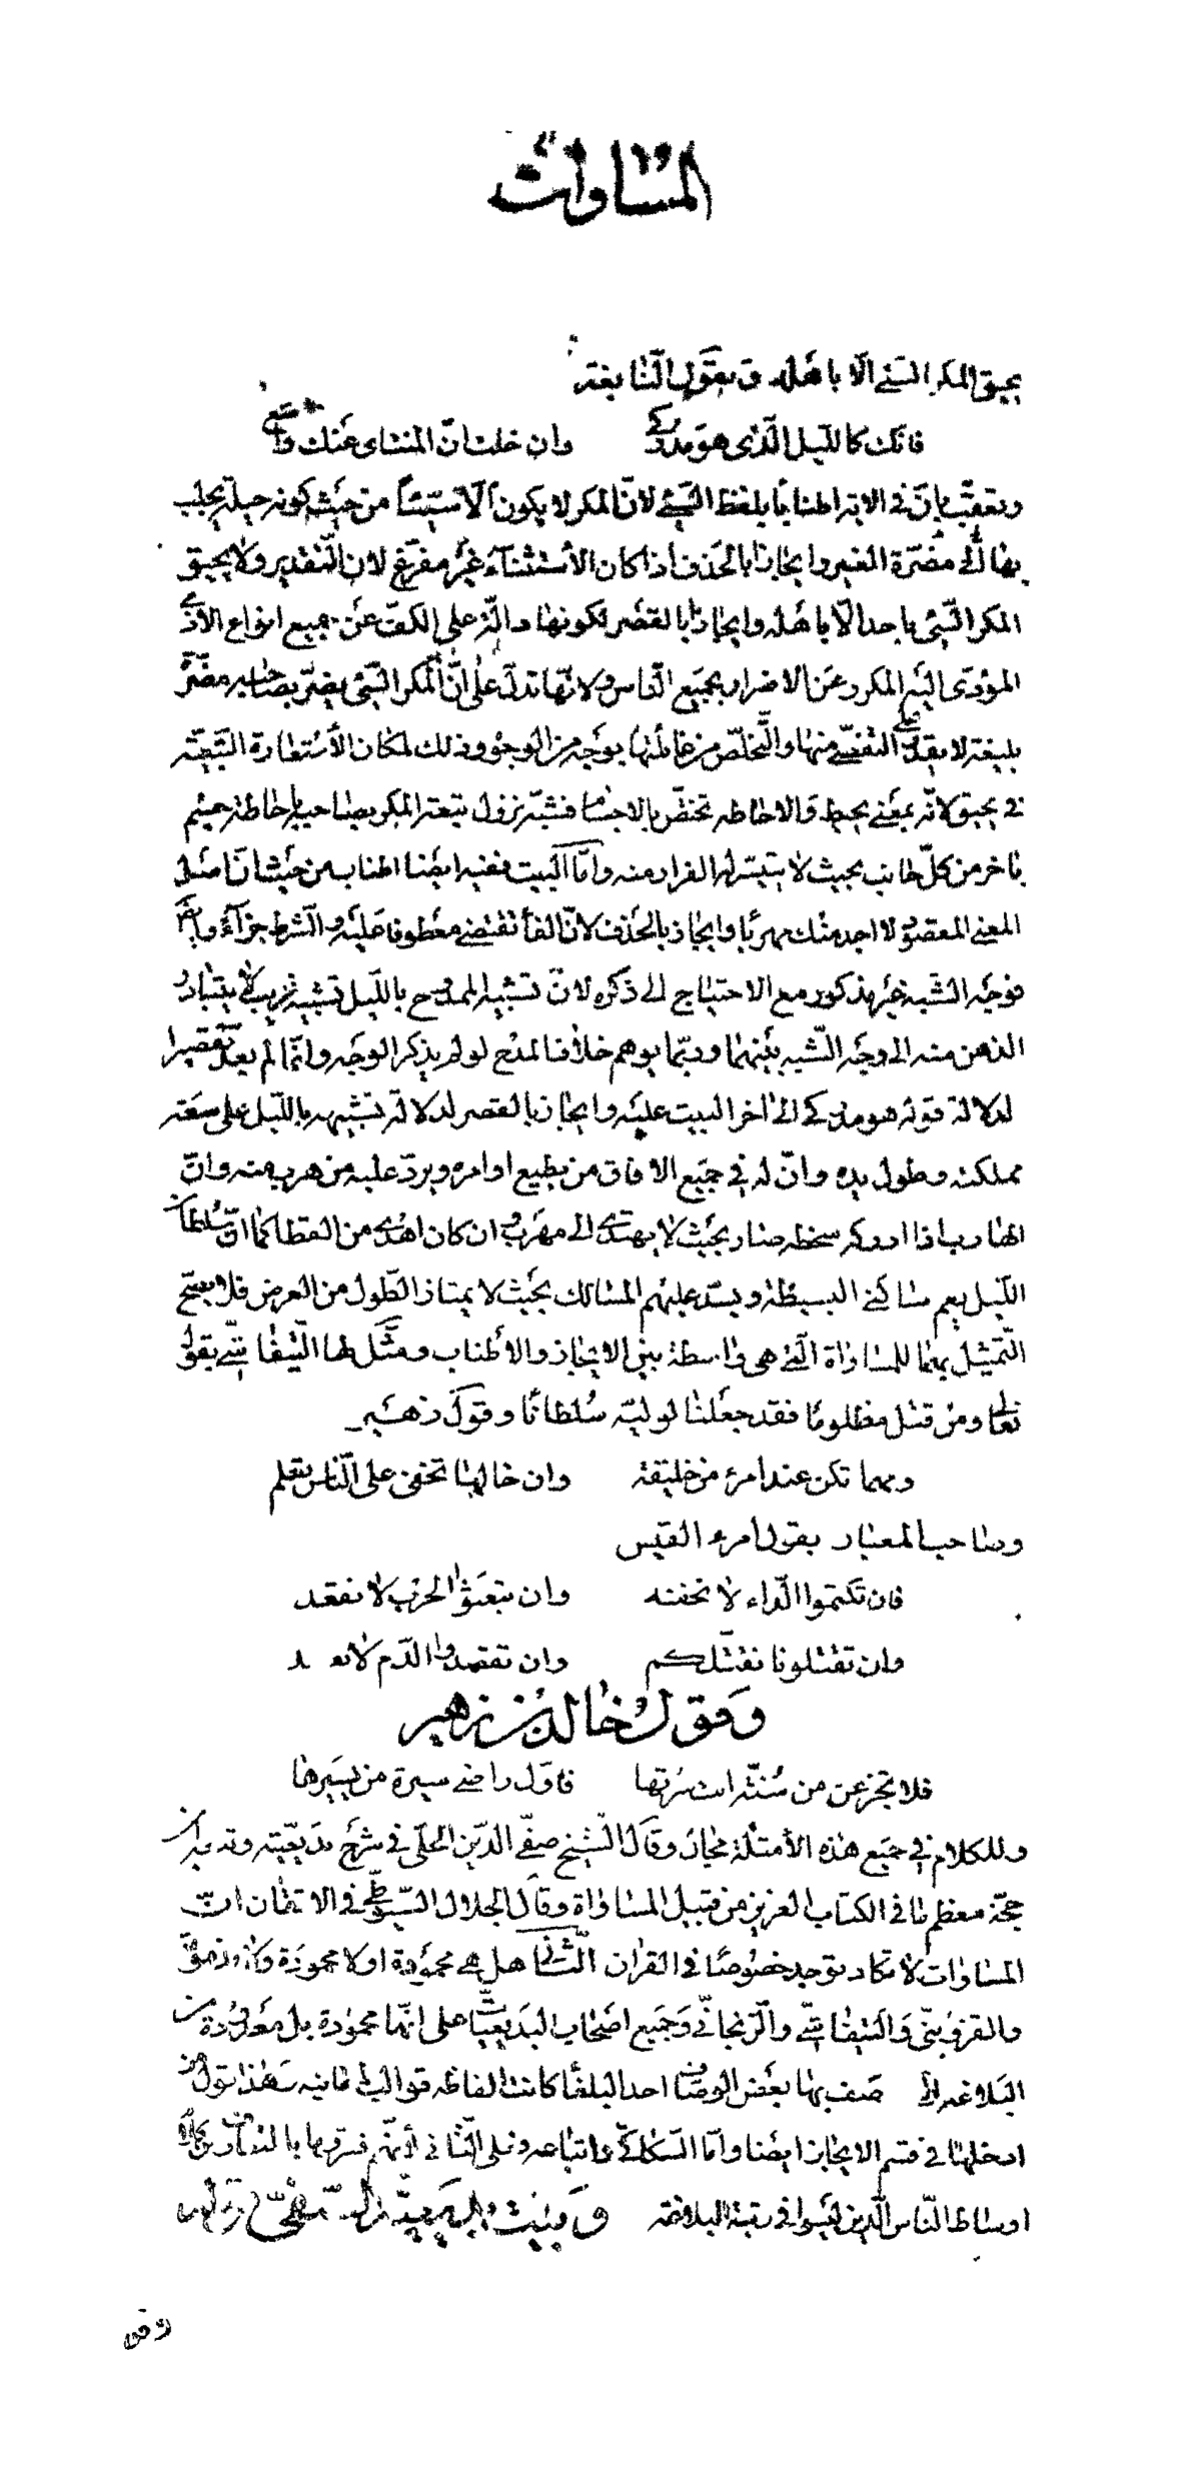 المساوات
يحيق المكر السّيّئ الّا باهله و بقول النّابغة
فانّك كاللّيل الّذى هو مدركى وان خلت انّ المنتاى عنك واسع
وتعقّب بانّ فى الاية اطنابًا بلفظ السّيّئ لانّ المكر لا يكون الّا سيّئاً من حيث كونه حيلة يجلب
بها الى مضرّة الغير وايجازا بالحذف اذا كان الأستثنآء غير مفرّغ لان التّقدير ولا يحيق
المكر السّيّئ باحد الّا باهله وايجازًا بالقصر لكونها دالّة على الكفّ عن جميع انواع الاذى
المؤدى اليه المكر وعن الاضرار بجميع النّاس ولانّها تدلّ على انّ المكر السّيّئ يضرّ بصاحبه مضرّة
بليغة لا يقدر على التّفصّى منها والتّخلّص من غائلتها بوجه من الوجوه وذلك لمكان الأستعارة التّبعيّة
فى يحيق لانّه بمعنى يحيط والاحاطة تختصّ بالاجسام فشبّه نزول تبعة المكر بصاحبه باحاطة جسم
باخر من كلّ جانب بحيث لا يتيسّر له الفرار منه وامّا البيت ففيه ايضا اطناب من حيث انّ اصل
المعنى المقصود لا اجد منك مهربًا وايجاز بالحذف لانّ الفآ تقتضى معطوفا عليه والشرط جزآءً وايضا
فوجه الشّبه غير مذكور مع الاحتياج الى ذكره لانّ تشبيه الممدوح باللّيل تشبيه غريب لا يتبادر
الذهن منه الى وجه الشّبه بينهما وربّما يوهم خلاف المدح لو لم يذكر الوجه وانّما لم يعدّ تقصيرا
لدلالة قوله هو مدركى الى اخر البيت عليه وايجاز بالقصر لدلالة تشبيهه باللّيل على سعة
مملكته وطول يده وانّ له فى جميع الافاق من يطيع اوامره ويردّ عليه من هرب منه وانّ
الهارب اذا ادركه سخطه صار بحيث لا يهتدى الى مهرب وان كان اهدى من القطا كما انّ سلطان
اللّيل يعم ساكنى البسيطة ويسدّ عليهم المسالك بحيث لا يمتاز الطّول من العرض فلا يصحّ
التّمثيل بهما للمساواة الّتى هى واسطة بين الايجاز والأطناب ومثّل لها التّيفاشىّ بقوله
تعالى ومن قتل مظلومًا فقد جعلنا لوليّه سُلطانًا وقول زهير
ومهما تكن عند امرء من خليقة وان خالها تخفى على النّاس تعلم
وصاحب المعيار بقول امرء القيس
فان تكتموا الدّاء لا نخفه وان تبعثوا الحرب لا نقعد
وان تقتلونا نقتّلكم وان تقصدوا الدّم
وقول خالد بن زهير
فلا تجزعن من سُنّة انت سرتها فاوّل راضى سيرة من يسيرها
وللكلام فى جميع هذه الأمثلة مجاز وقال الشّيخ صفىّ الدّين الحلّى فى شرح بديعيّته وتبعه ابن
حجّة معظم ما فى الكتاب العزيز من قبيل المساواة وقال الجلال السّيوطىّ فى الاتقان انّ
المساوات لا تكاد توجد خصوصًا فى القران الثّانى هل هى محمودة اولا محمودة ولا مذمومة
فالقزوينىّ والتّيفاشىّ والزّنجانىّ وجميع اصحاب البديعيّات على انّها محمودة بل معدودة من
البلاغة الّتى وصف بها بعض الوصّاف احد البلغا كانت الفاظه قوالب لمعانيه
ادخلها فى قسم الايجاز ايضا وامّا السّكاكىّ واتباعه فعلى الثّانى لأنّهم فسّروها بالمتعارف من كلام
اوساط النّاس الّذين ليسوا فى رتبة البلاغة وبيت بديعيّة الصّفىّ قوله